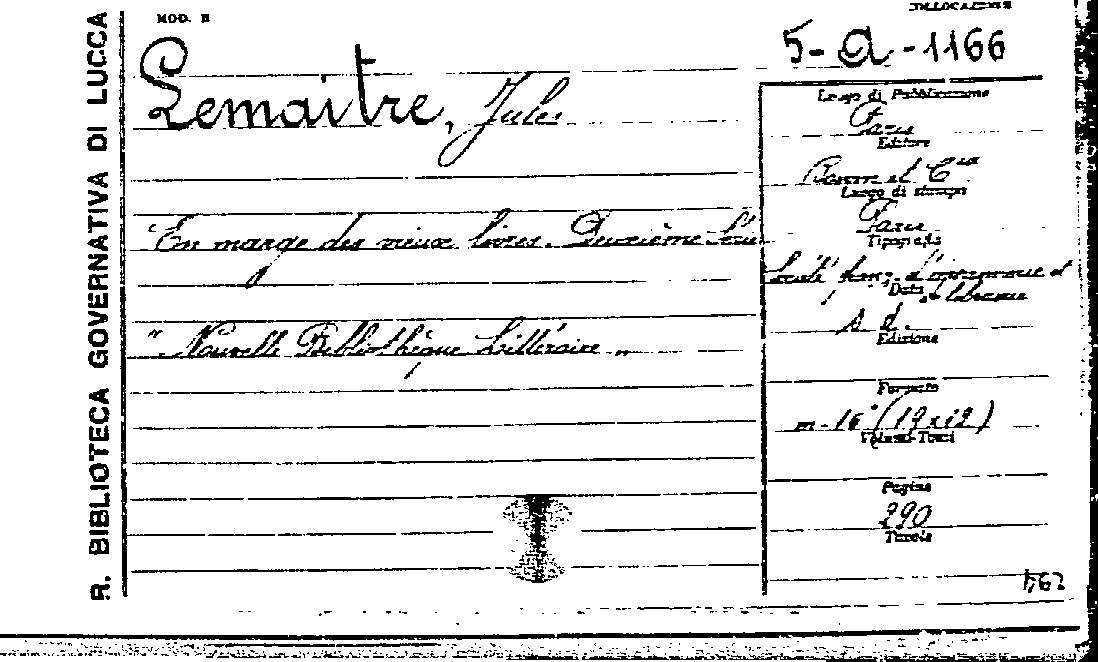 R. BIBLIOTECA GOVERNATIVA DI LUCCA
MOD. B
COLLOCAZIONE
5-a-1166
Lemaitre, Jules
En marge des vieux livres. Deuxième Série
"Nouvelle Bibliothèque littéraire"
Luogo di Pubblicazione
Paris
Editore
et C.ie
Luogo di stampa
Paris
Tipografia
Société franç. d'imprimerie et
Data de librairie
s. d.
Edizione
Formato
m-16° (19x12)
Volumi-Tomi
Pagine
290
Tavole